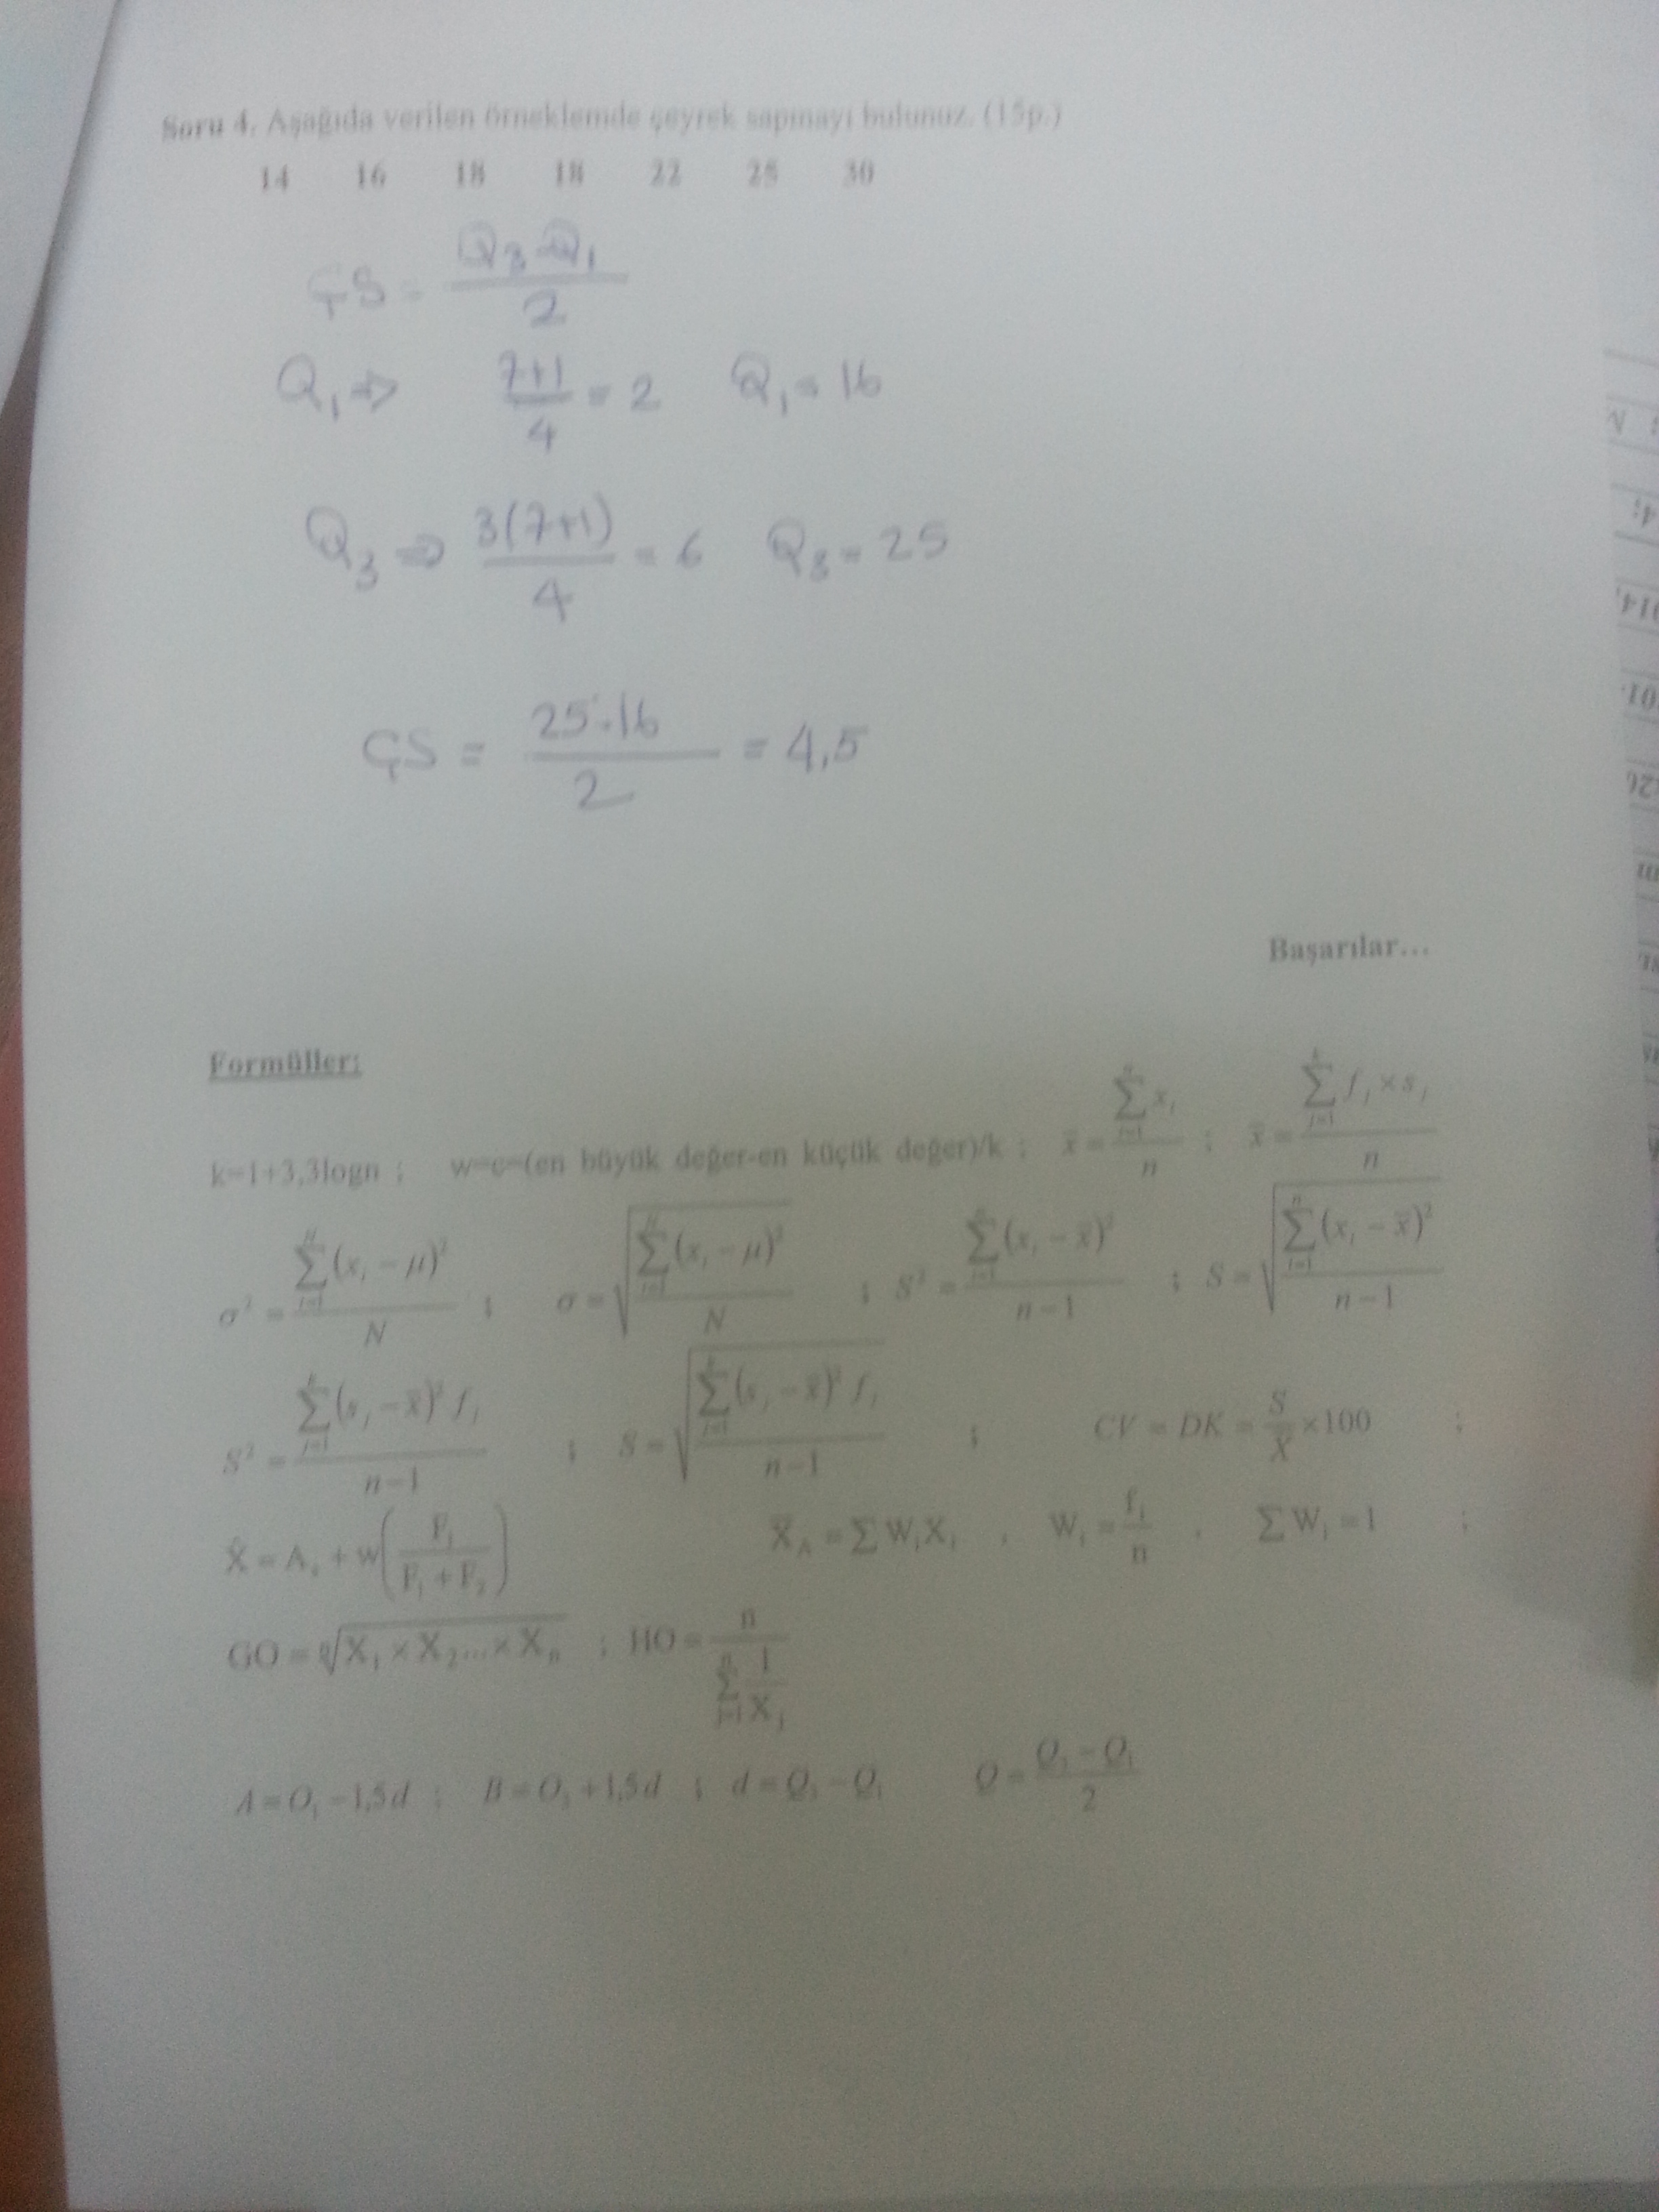 Soru 4. Aşağıda verilen örneklemde çeyrek sapmayı bulunuz. (15p.)
14 16 18 18 22 25 30
ÇS = Q₃-Q₁ / 2
Q₁ ⇒ 7+1 / 4 = 2 Q₁ = 16
Q₃ ⇒ 3(7+1) / 4 = 6 Q₃ = 25
ÇS = 25-16 / 2 = 4,5
Başarılar...
Formüller:
k=1+3,3logn ; w=c=(en büyük değer-en küçük değer)/k ; x̄ = ∑ᵢ₌₁ⁿ xᵢ / n ; x̄ = ∑ᵢ₌₁ᵏ fᵢ × sᵢ / n
σ² = ∑ᵢ₌₁ᴺ (xᵢ − μ)² / N ; σ = √(∑ᵢ₌₁ᴺ (xᵢ − μ)² / N) ; S² = ∑ᵢ₌₁ⁿ (xᵢ − x̄)² / n−1 ; S = √(∑ᵢ₌₁ⁿ (xᵢ − x̄)² / n−1)
S² = ∑ᵢ₌₁ᵏ (sᵢ − x̄)² fᵢ / n−1 ; S = √(∑ᵢ₌₁ᵏ (sᵢ − x̄)² fᵢ / n−1) ; CV = DK = S / X̄ ×100 ;
X̂ = A + w(F₁ / F₁ + F₂) X̄_A = ∑ WᵢXᵢ , Wᵢ = fᵢ / n , ∑ Wᵢ = 1 ;
GO = ⁿ√X₁ × X₂... × Xₙ ; HO = n / ∑ᵢ₌₁ⁿ 1 / Xᵢ
A = Q₁ − 1,5d ; B = Q₃ + 1,5d ; d = Q₃ − Q₁ Q = Q₃ − Q₁ / 2